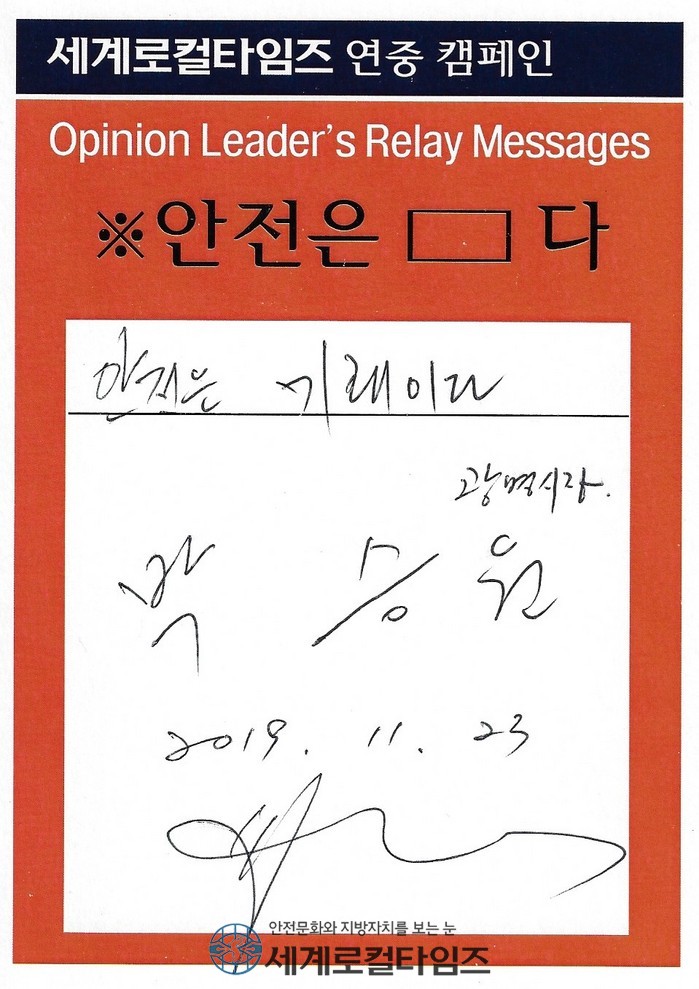 세계로컬타임즈 연중 캠페인
Opinion Leader's Relay Messages
※안전은 ▭ 다
안전은 미래이다
광명시장.
박 승 원
2019. 11. 23
안전문화와 지방자치를 보는 눈
세계로컬타임즈